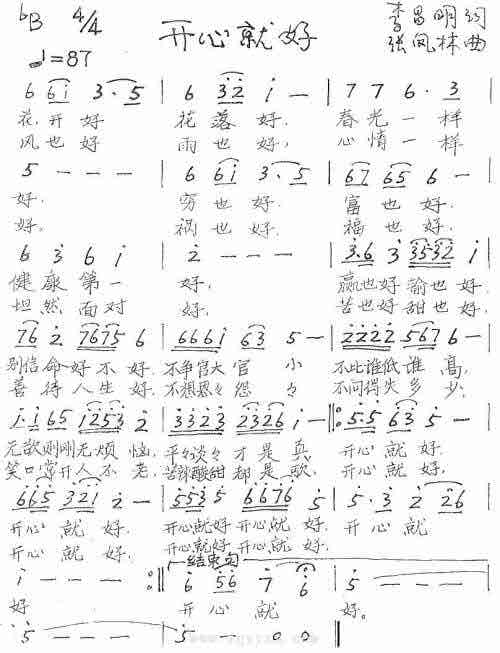 bB 4/4
♩=87
开心就好
李昌明词
张凤林曲
6 6i 3·5 | 6 32 i — | 7 7 6·3
花开好 花落好. 春光一样
风也好 雨也好, 心情一样
5 — — — | 6 6i 3·5 | 67 65 6 —
好. 穷也好. 富也好.
好。 祸也好. 福也好.
6 3 6 i | 2 — — — | 3·6 3 3532 i
健康第一 好. 赢也好输也好.
坦然面对 好. 苦也好甜也好.
76 2 7675 6 | 6661 63 5 — | 2222 567 6 —
别信命好不好. 不争官大官小 不比谁低谁高,
善待人生好. 不想恩々怨々 不问得失多少;
1·1 65 1253 2 | 3323 2326 i — ‖: 5·5 63 5 —
无欲则刚无烦恼, 平々谈々才是真 开心就好.
笑口常开人不老, 苦辣酸甜都是歌. 开心就好.
665 321 2 — | 5535 6676 5 | 5·3 2 26
开心就好. 开心就好开心就好. 开心就
开心就好. 开心就好开心就好.
结束句
i — — — :‖ 6 56 7 6 | 5 — — —
好 开心就 好。
5 — — — | 5 — 0 0 ‖